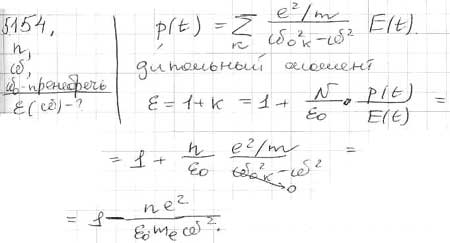 §154.
n,
ω,
ω₀-пренебречь
ε(ω)-?
p(t) = Σ_k (e²/m)/(ω₀²k - ω²) E(t).
дипольный момент
ε = 1 + κ = 1 + N/ε₀ · p(t)/E(t) =
= 1 + n/ε₀ (e²/m)/(ω₀²k - ω²) =
→0
= 1 - ne²/(ε₀mₑω²).